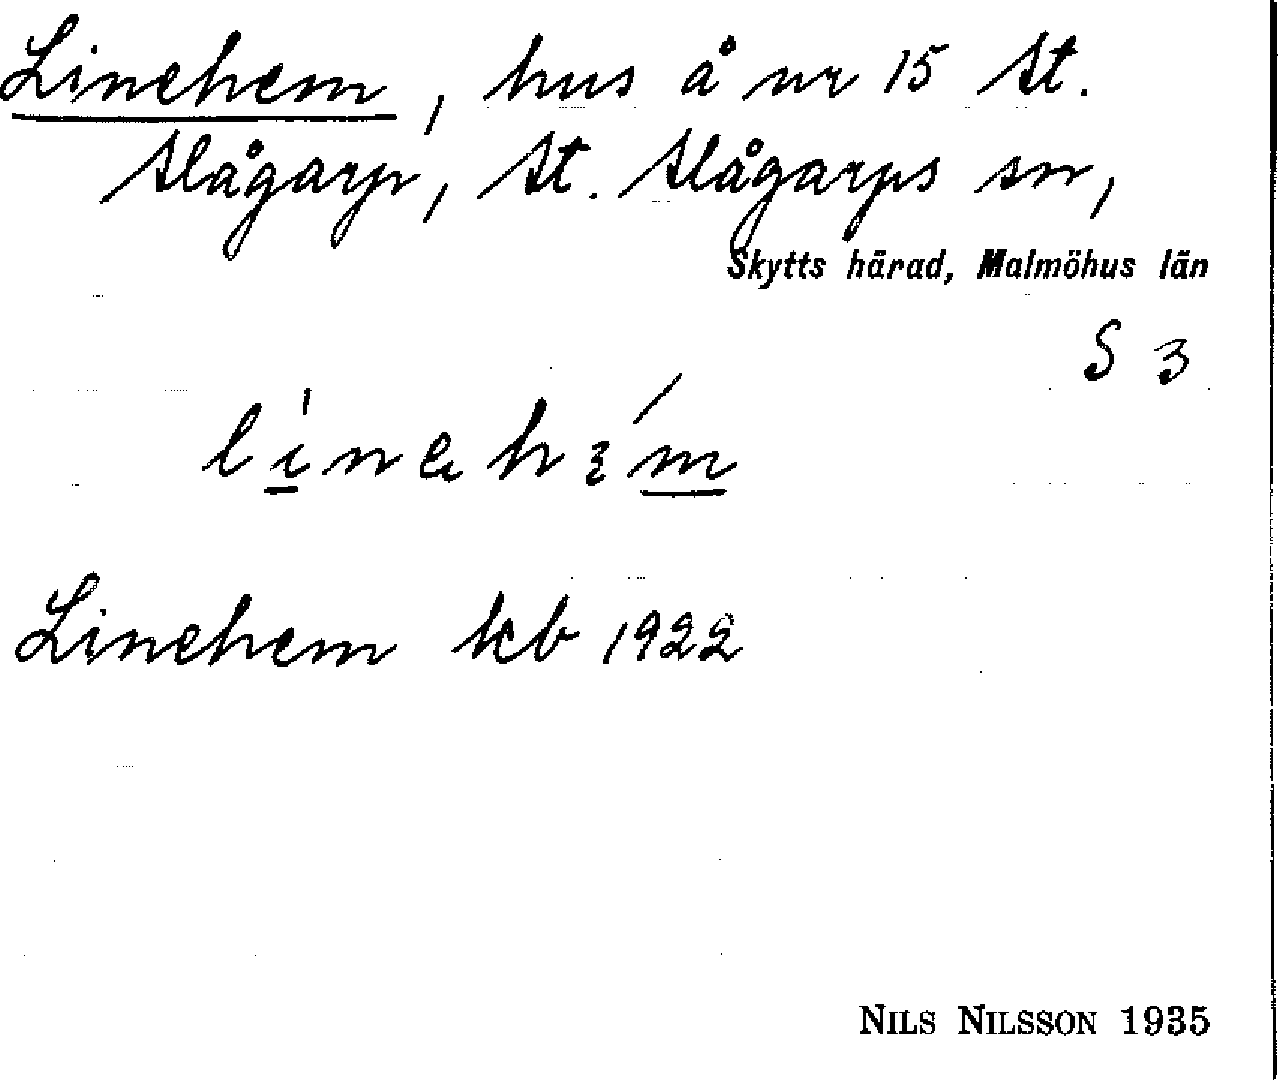 Linehem, hus å nr 15 St.
Slågarp, St. Slågarps sn,
Skytts härad, Malmöhus län
S 3
Linehem kb 1922
NILS NILSSON 1935